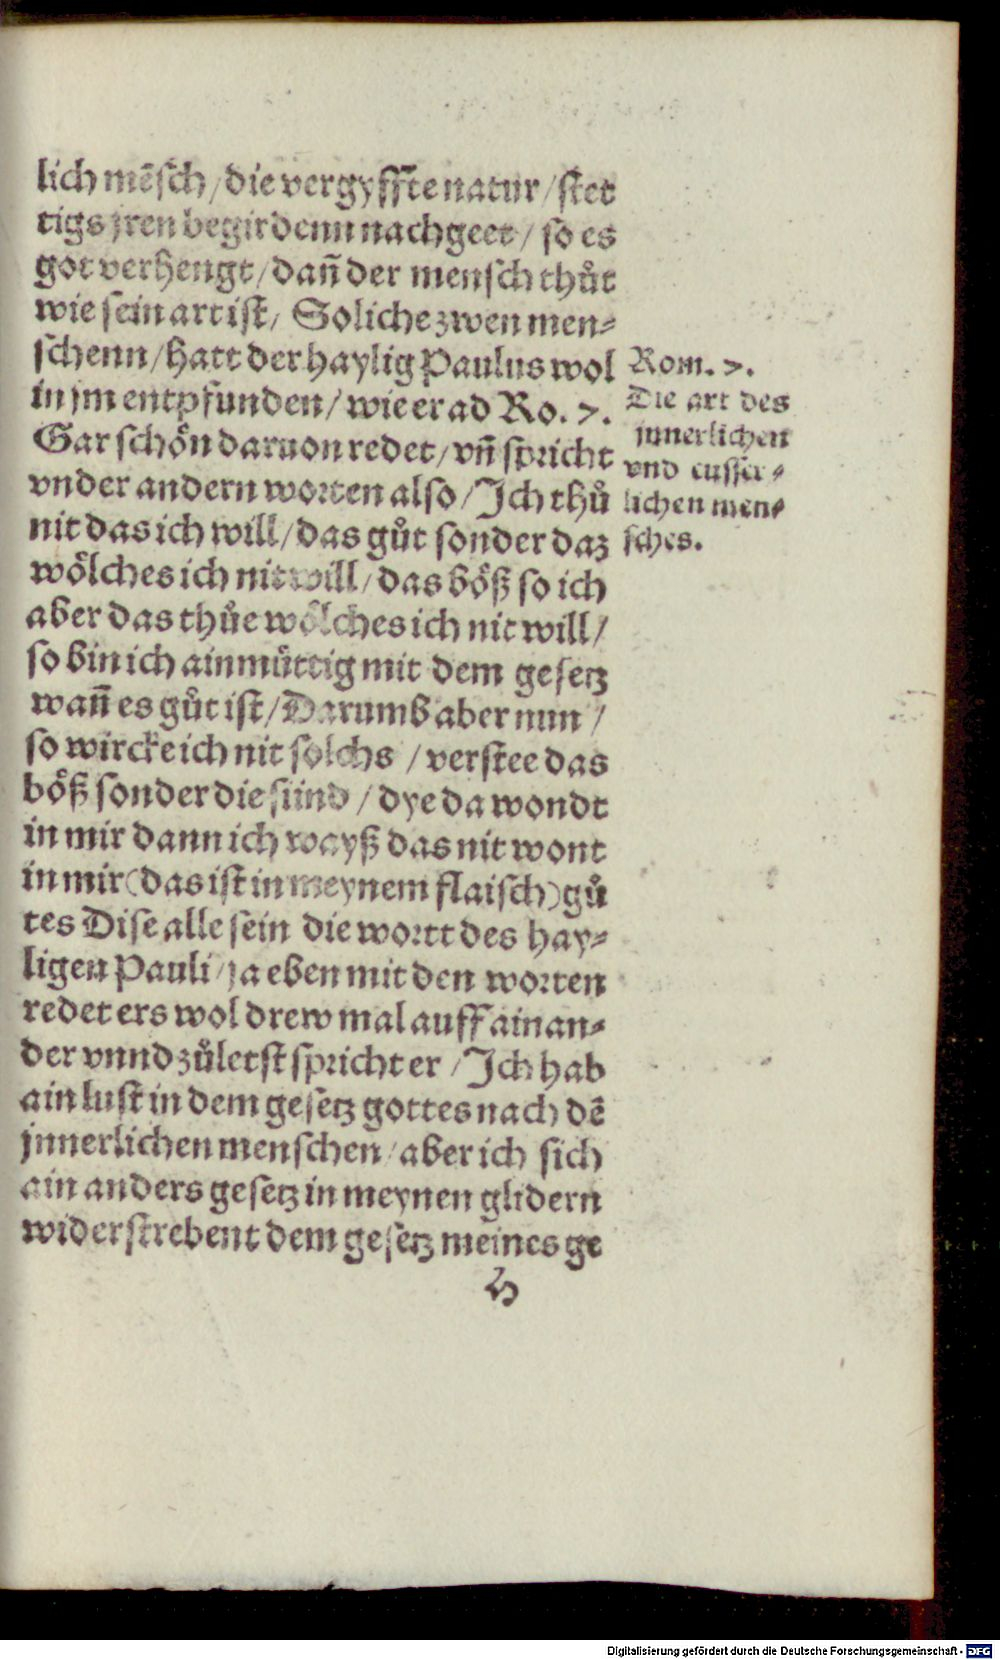 lich mēsch / die vergyffte natur / stet
tigs jren begirdenn nachgeet / so es
got verhengt / dañ der mensch thůt
wie sein art ist / Soliche zwen men⸗
schenn / hatt der haylig Paulus wol
in jm entpfunden / wie er ad Ro. 7.
Gar schön daruon redet / vñ spricht
vnder andern worten also / Ich thů
nit das ich will / das gůt sonder daz
wölches ich nit will / das böß so ich
aber das thůe wölches ich nit will /
so bin ich ainmüttig mit dem gesetz
wañ es gůt ist / Darumb aber nun /
so wircke ich nit solchs / verstee das
böß sonder die sünd / dye da wondt
in mir dann ich wayß das nit wont
in mir (das ist in meynem flaisch) gů
tes Dise alle sein die wortt des hay⸗
ligen Pauli / ja eben mit den worten
redet ers wol drew mal auff ainan⸗
der vnnd zůletst spricht er / Ich hab
ain lust in dem gesetz gottes nach dē
jnnerlichen menschen / aber ich sich
ain anders gesetz in meynen glidern
widerstrebent dem gesetz meines ge
H
Rom. 7.
Die art des
jnnerlichen
vnd eusser⸗
lichen men⸗
sches.
Digitalisierung gefördert durch die Deutsche Forschungsgemeinschaft - DFG